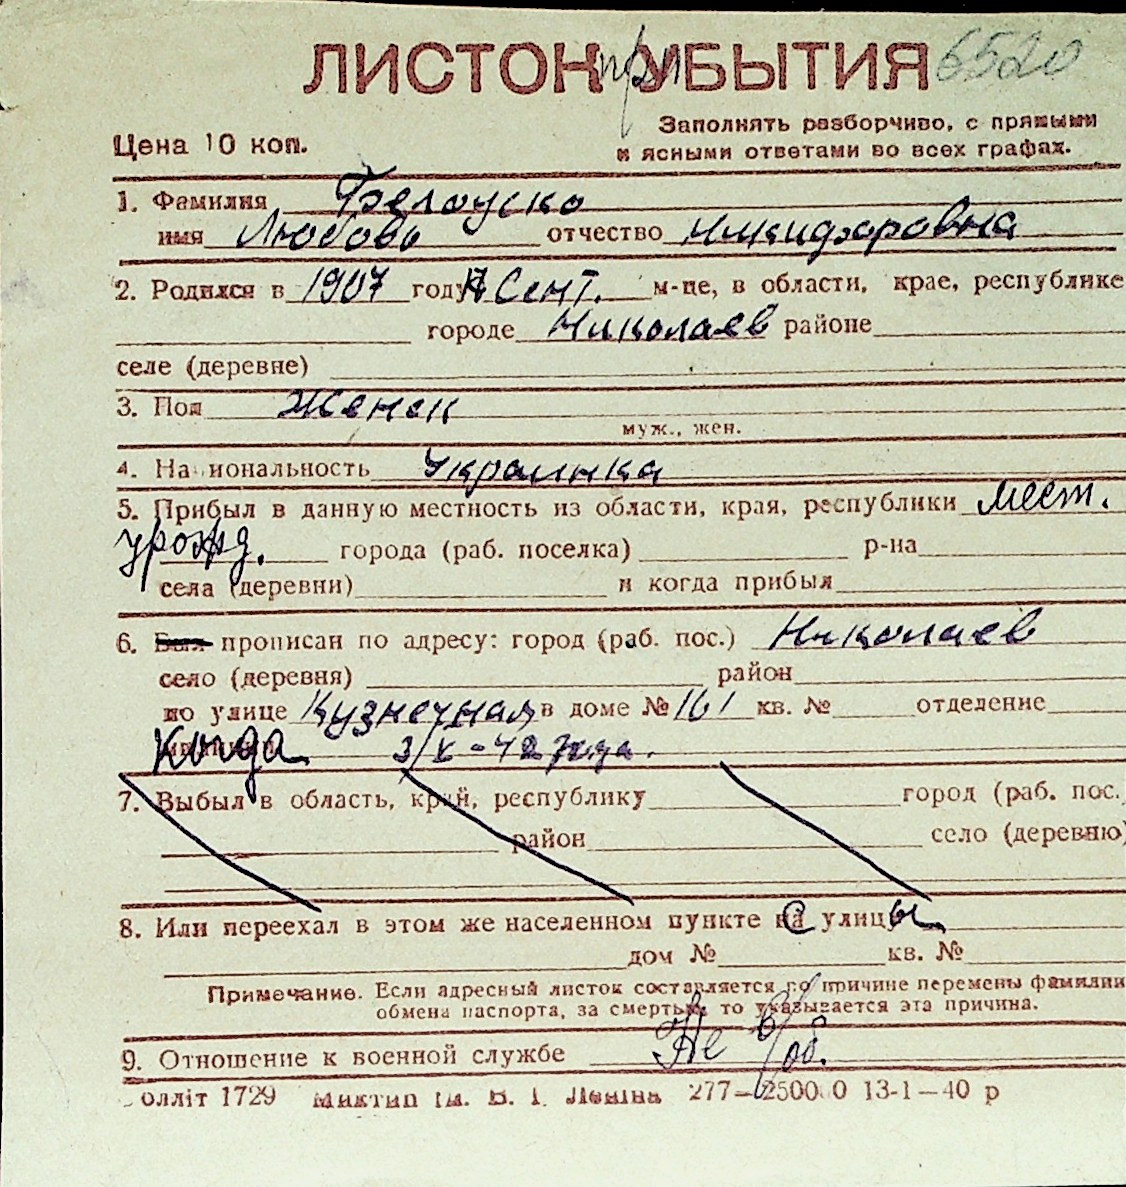 ЛИСТОК УБЫТИЯ 6520
при
Цена 10 коп.
Заполнять разборчиво, с прямыми
и ясными ответами во всех графах.
1. Фамилия Белоуско
имя Любовь отчество Никифоровна
2. Родился в 1907 году Сент. м-це, в области, крае, республике
городе Николаев районе
селе (деревне)
3. Пол Женск
муж., жен.
4. Национальность Украинка
5. Прибыл в данную местность из области, края, республики мест.
урожд. города (раб. поселка) р-на
села (деревни) и когда прибыл
6. Был прописан по адресу: город (раб. пос.) Николаев
село (деревня) район
по улице Кузнечная в доме № 161 кв. № отделение
Когда 3/X-42 года.
7. Выбыл в область, край, республику город (раб. пос.
район село (деревню)
8. Или переехал в этом же населенном пункте с улицы
дом № кв. №
Примечание. Если адресный листок составляется по причине перемены фамилии
обмена паспорта, за смертью, то указывается эта причина.
9. Отношение к военной службе Не в/об.
олліт 1729 Миктип ім. В. І. Леніна 277—250000 13-1—40 р